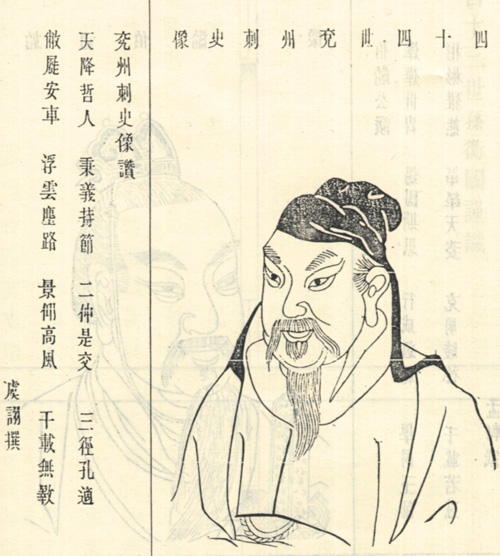 四十四世兗州刺史像
兗州刺史像讚
天降哲人 秉義持節 二仲是交 三徑孔適
敝屣安車 浮雲塵路 景仰高風 千載無斁
虞詡撰